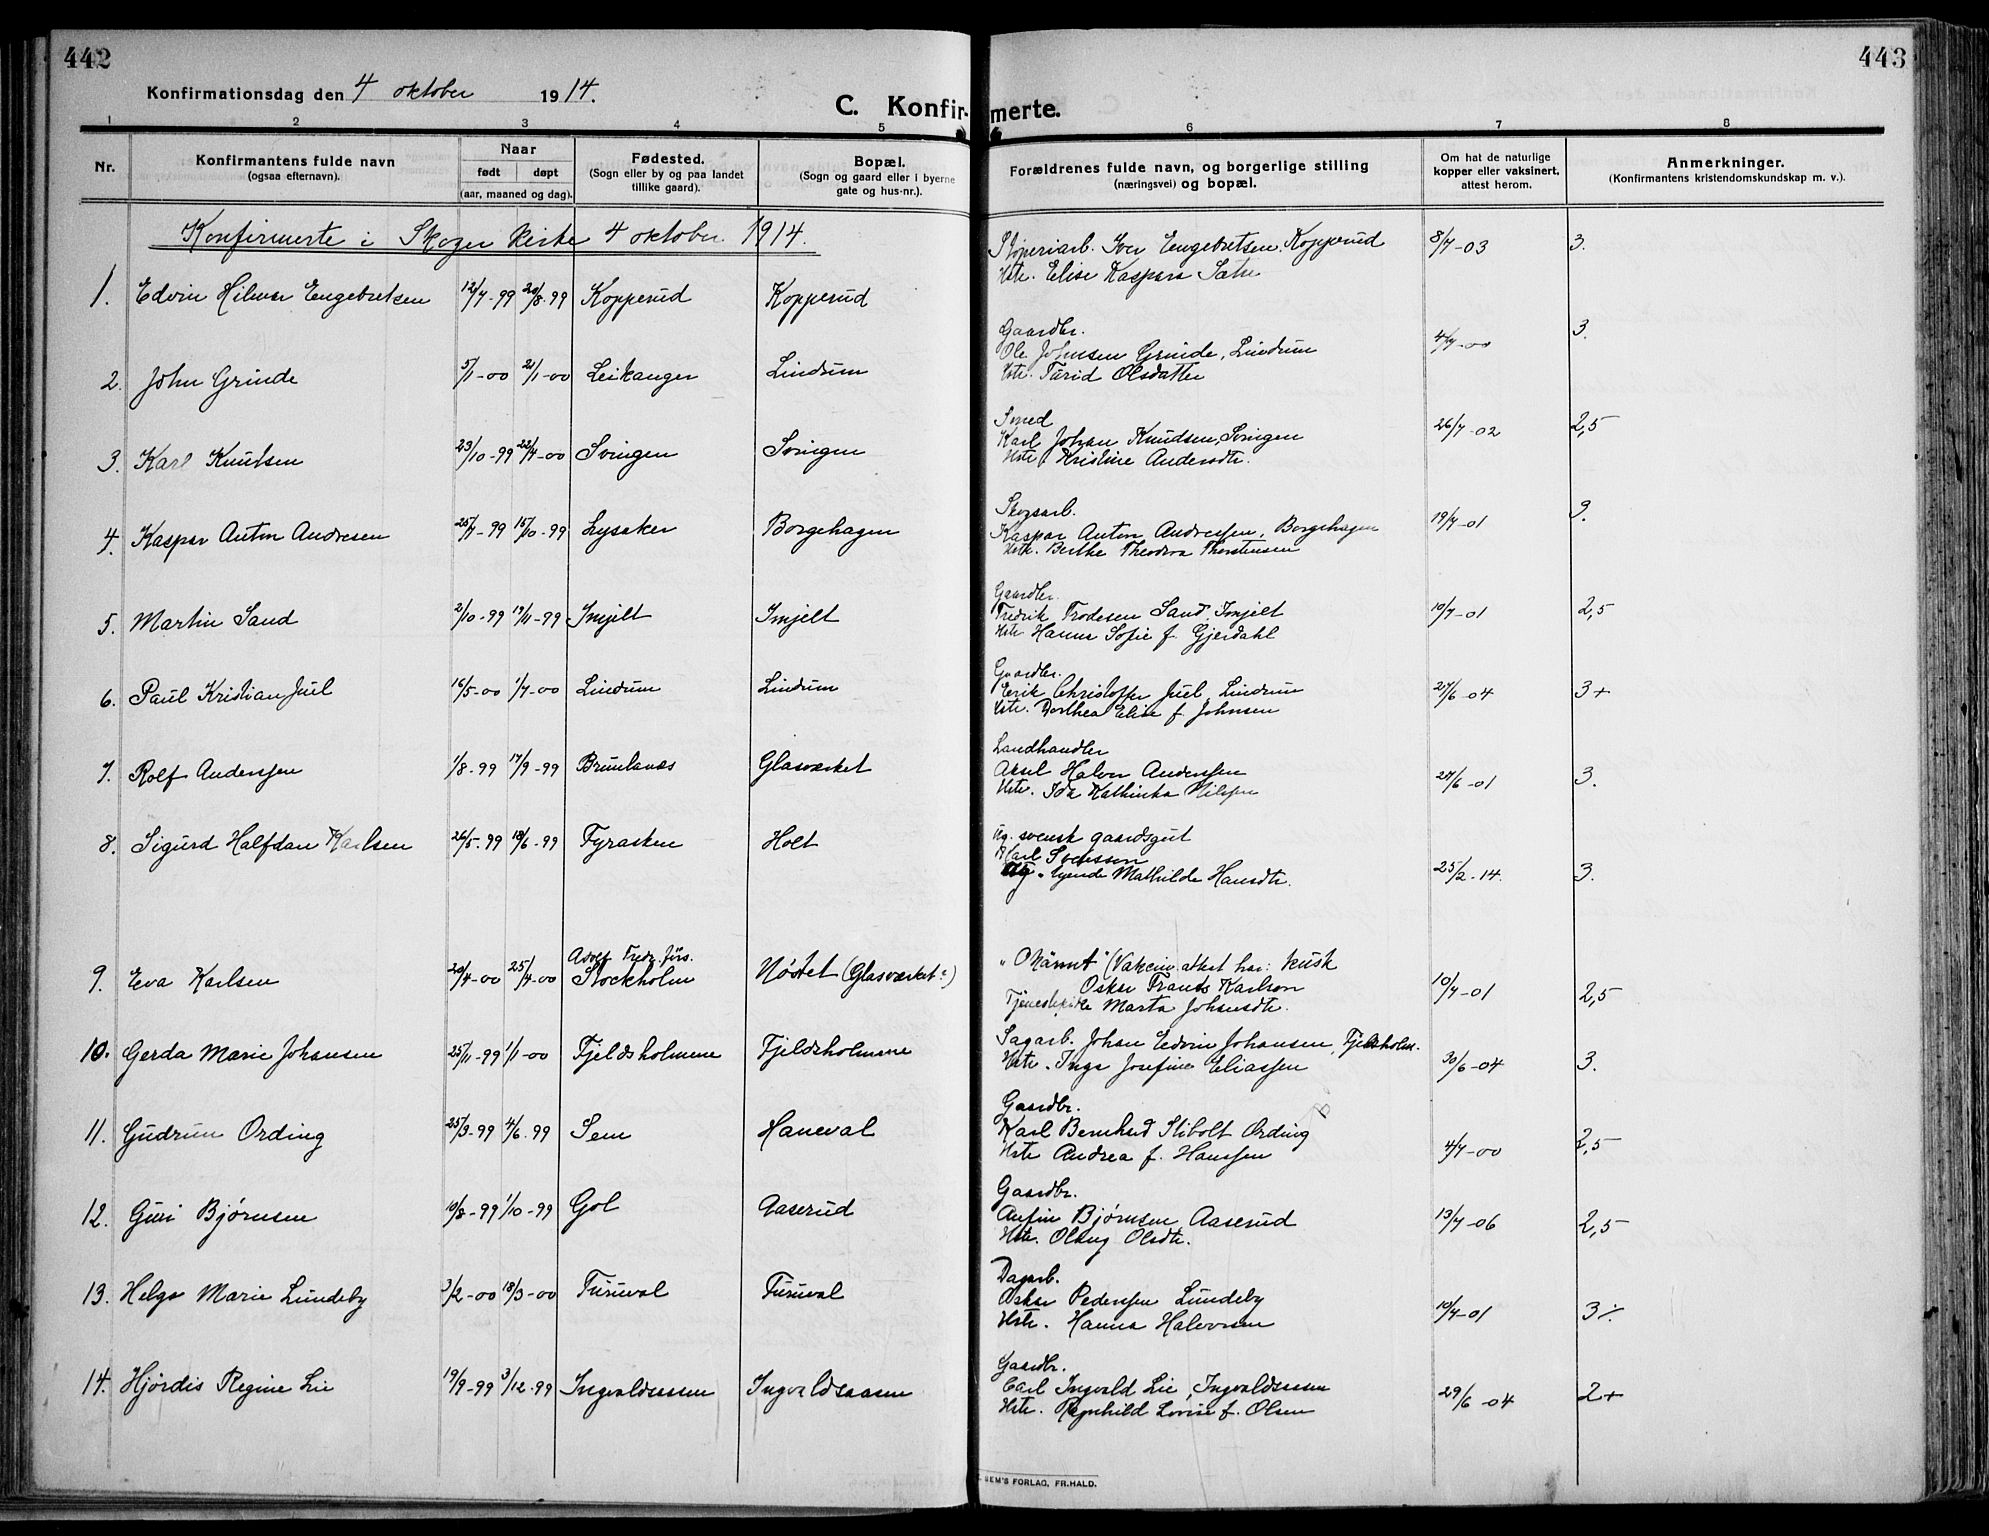 442
443
Konfirmationsdag den 4 oktober 1914.
C. Konfirmerte.
1 2 3 4 5 6 7 8
Nr.
Konfirmantens fulde navn
(ogsaa efternavn).
Naar
født døpt
(aar, maaned og dag).
Fødested.
(Sogn eller by og paa landet
tillike gaard).
Bopæl.
(Sogn og gaard eller i byerne
gate og hus-nr.).
Forældrenes fulde navn, og borgerlige stilling
(næringsvei) og bopæl.
Om hat de naturlige
kopper eller vaksinert,
attest herom.
Anmerkninger.
(Konfirmantens kristendomskundskap m. v.).
Konfirmerte i Skoger kirke 4 oktober 1914.
Støperiarb. Iver Engebretsen, Kopperud
Hstr. Elise Kaspara
1. Edvin Hilmar Engebretsen 12/7-99 20/8-99 Kopperud Kopperud 8/7-03 3.
Gaardbr.
Ole Johnsen Grinde, Lindum
Hstr. Turid Olsdatter
2. John Grinde 5/1-00 21/1-00 Leikanger Lindum 4/7-00 3.
Smed
Karl Johan Knudsen, Svingen
Hstr. Kristine Andersdtr.
3. Karl Knutsen 23/10-99 22/4-00 Svingen Svingen 26/7-02 2,5
Skogsarb.
Kaspar Anton Andressen, Borgehagen
Hstr. Berthe Theodora Thorstensen
4. Kaspar Anton Andresen 25/7-99 15/10-99 Lysaker Borgehagen 19/7-01 3.
Gaardbr.
Fredrik Frodesen Sand, Imjelt
Hstr. Hanna Sofie f. Gjerdahl
5. Martin Sand 2/10-99 19/11-99 Imjelt Imjelt 10/7-01 2,5
Gaardbr.
Eerik Christoffer Juel, Lindrum
Hstr. Dorthea Elise f. Johnsen
6. Paul Kristian Juel 16/5-00 1/7-00 Lindum Lindum 27/6-04 3+
Landhandler
Aksel Halvor Anderssen
Hstr. Ida Kathinka Nilssen
7. Rolf Anderssen 1/8-99 17/9-99 Brunlanæs Glasværket 27/6-01 3.
Ug. svensk gaardsgut
Karl Svensson
Ug. tjende Mathilde Hansdtr.
8. Sigurd Halfdan Karlsen 26/5-99 18/6-99 Fyrasken Holt 25/2-14. 3.
Adolf Fredr. förs.
9. Eva Karlsen 20/4-00 25/4-00 Stockholm Nøstet (Glasværket?) 10/7-01 2,5
(Vakcine attest har: kusk
Oskar Frants Karlson
Marta Johansdtr.
Sagarb. Johan Edvin Johansen, Fjeldsholm.
Hstr. Inga Josefine Eliassen
10. Gerda Marie Johansen 25/11-99 1/1-00 Fjeldsholmene Fjeldsholmene 30/6-04 3.
Gaardbr.
Karl Bernhard Stibolt Ording
Hstr Andrea f. Hanssen
11. Gudrun Ording 25/3-99 4/6-99 Sem Haneval 4/7-00 2,5
Gaardbr.
Anfin Bjørnsen, Aaserud
Hstr. Olaug Olsdtr.
12. Guri Bjørnsen 10/8-99 1/10-99 Gol Aaserud 13/7-06 2,5
Dagarb.
Oskar Pedersen Lundeby
Hstr. Hanna Halvorsen
13. Helga Marie Lundeby 3/2-00 18/3-00 Furuval Furuval 10/7-01 3÷
Gaardbr.
Carl Ingvald Lie, Ingvaldsaasen
Hstr. Ragnhild Lovise f. Olsen
14. Hjørdis Regine Lie 19/9-99 3/12-99 Ingvaldsaasen Ingvaldsaasen 29/6-04 2+
SEM'S FORLAG, FR.HALD.